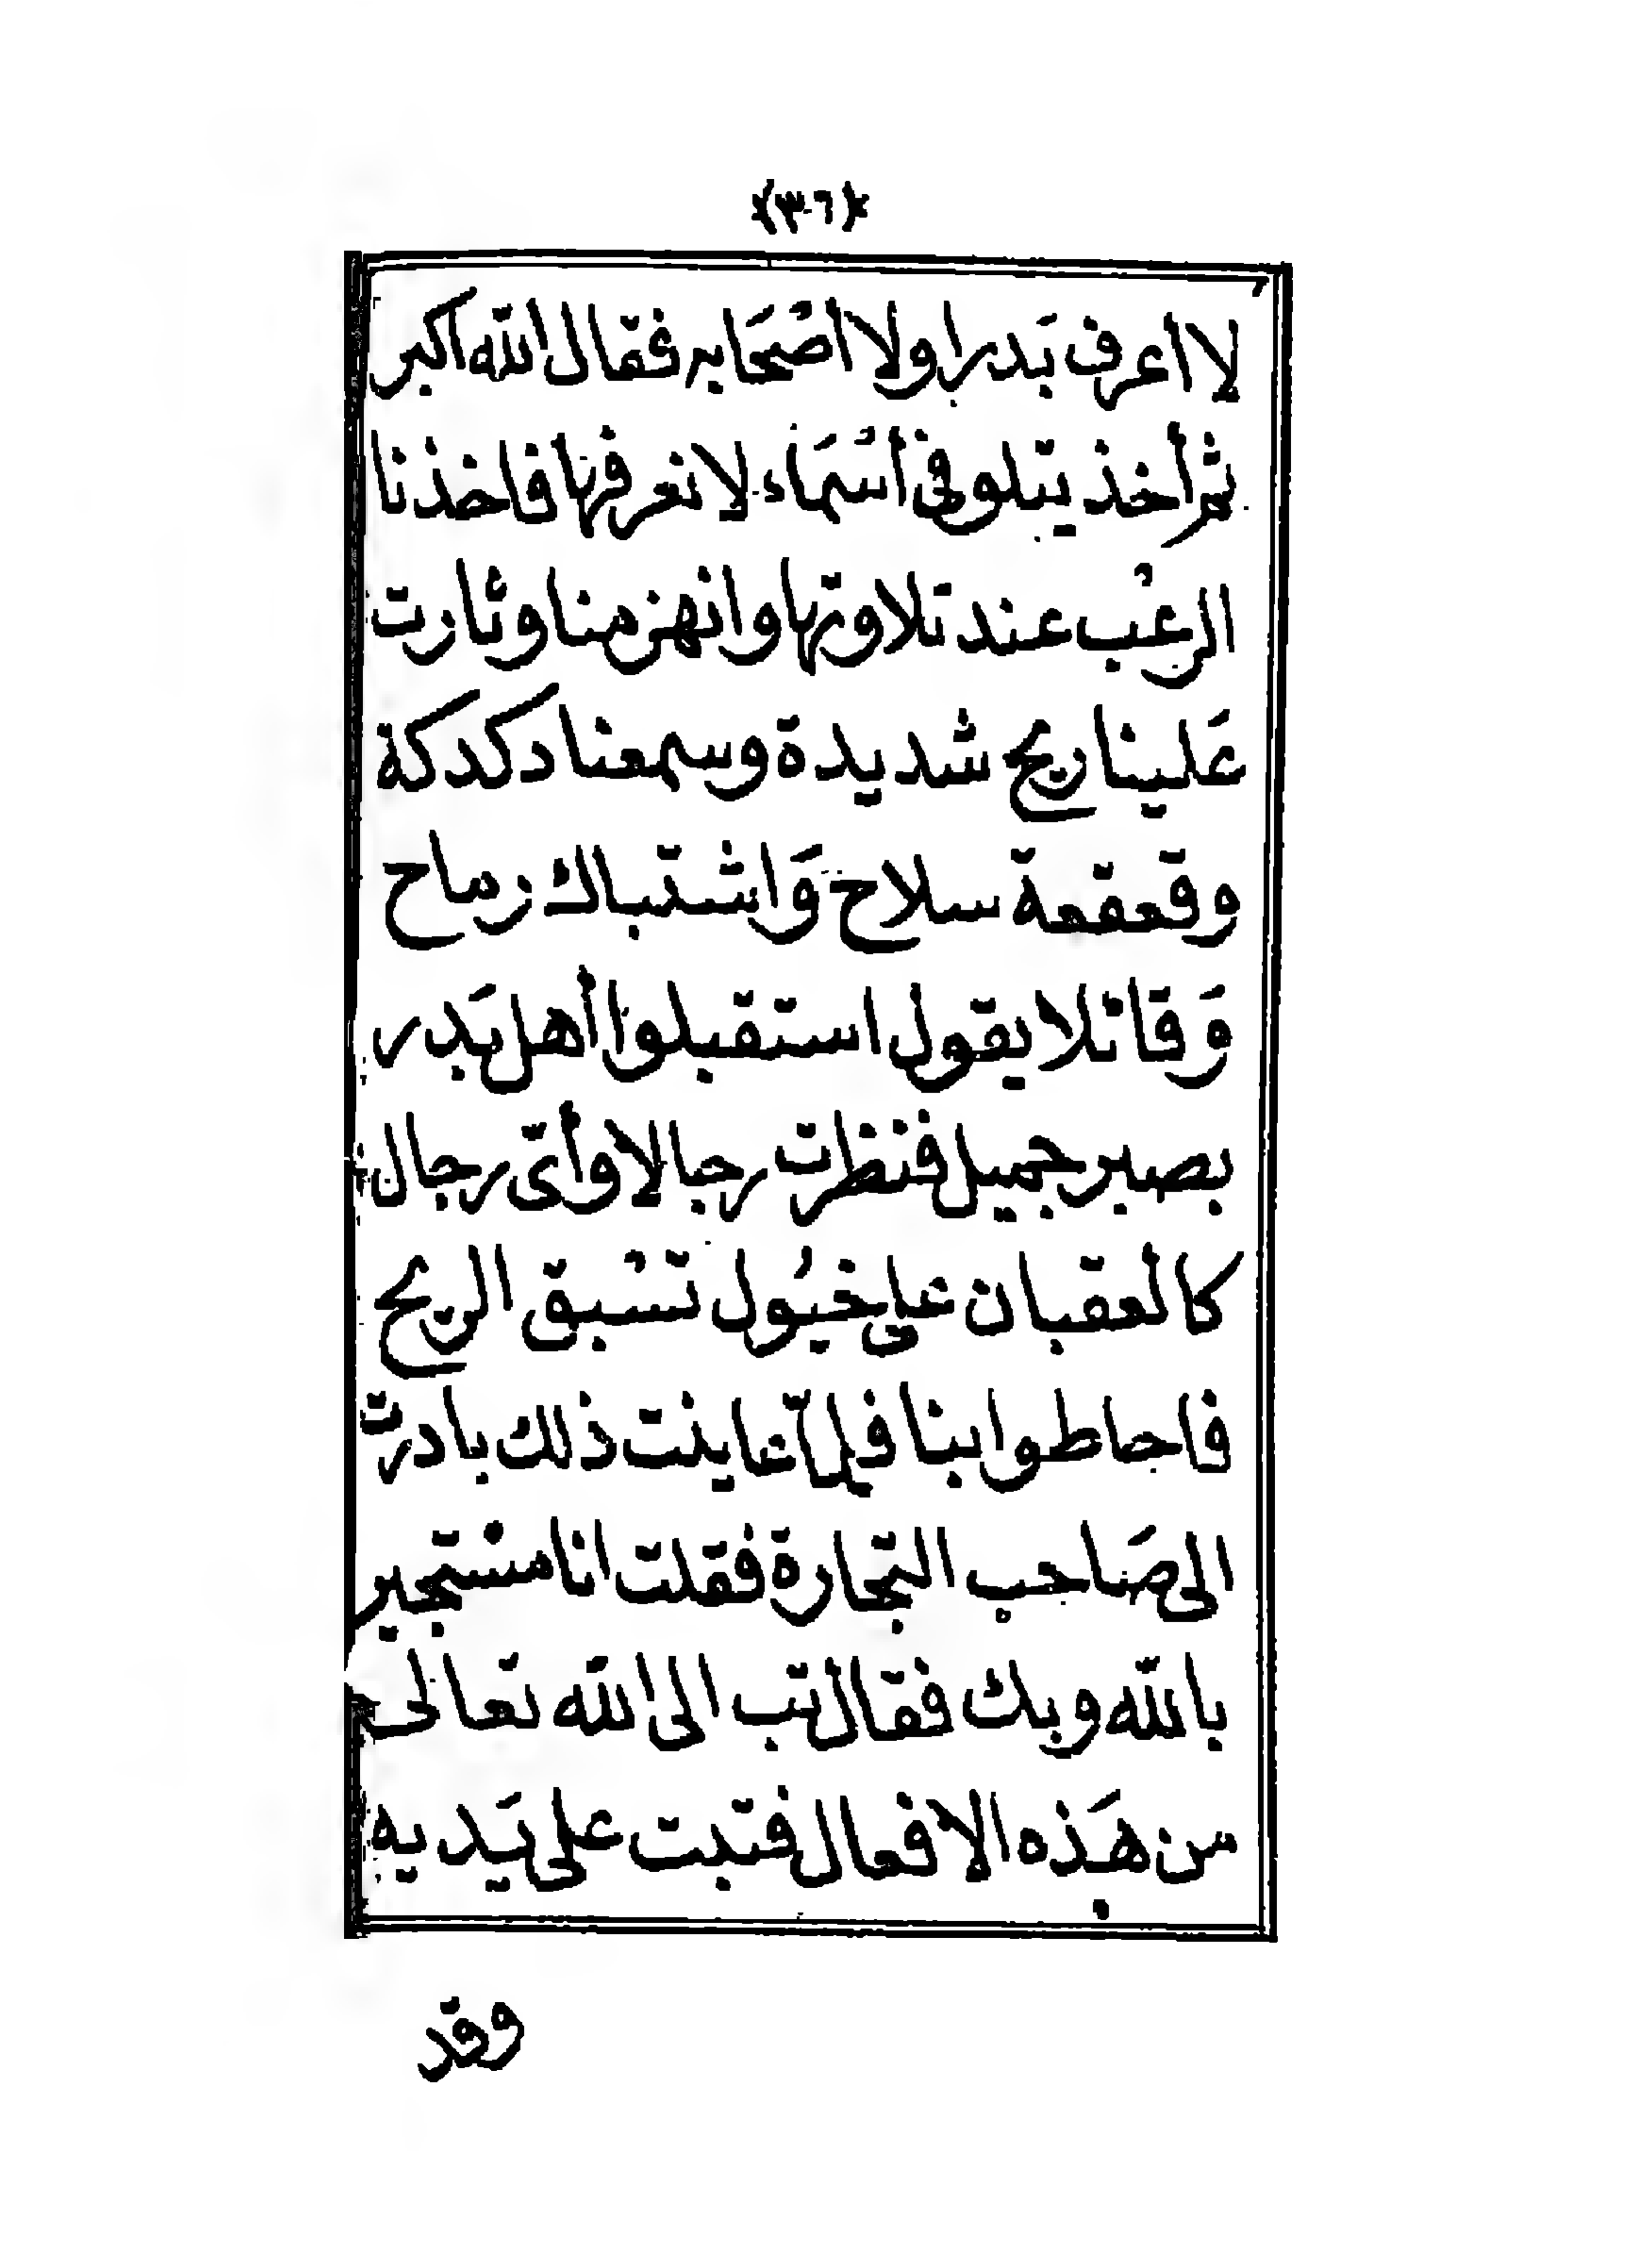 ﴿٣٦﴾
لا اعرف بَدرا ولا اصْحَابه فقال الله اكبر
ثم أخذ يتلو فى اسْمَاء لا نعرفها فاخذنا
الرعْب عند تلاوتها وانهزمنا وثارت
عَلينا ريح شديدة وسمعنا دكدكة
وقعقعة سلاح وَاشتباك رماح
وَقائلا يقول استقبلوا أهل بَدر
بصبر جميل فنظرت رجالا وأىّ رجال
كالعقبان على خيُول تسْبق الريح
فاحاطوا بنا فلمّا عاينت ذلك بادرت
الى صَاحب التجارة فقلت انا مستجير
بالله وبك فقال تب الى الله تعالى
من هَذه الافعال فتبت على يَديه
وقد